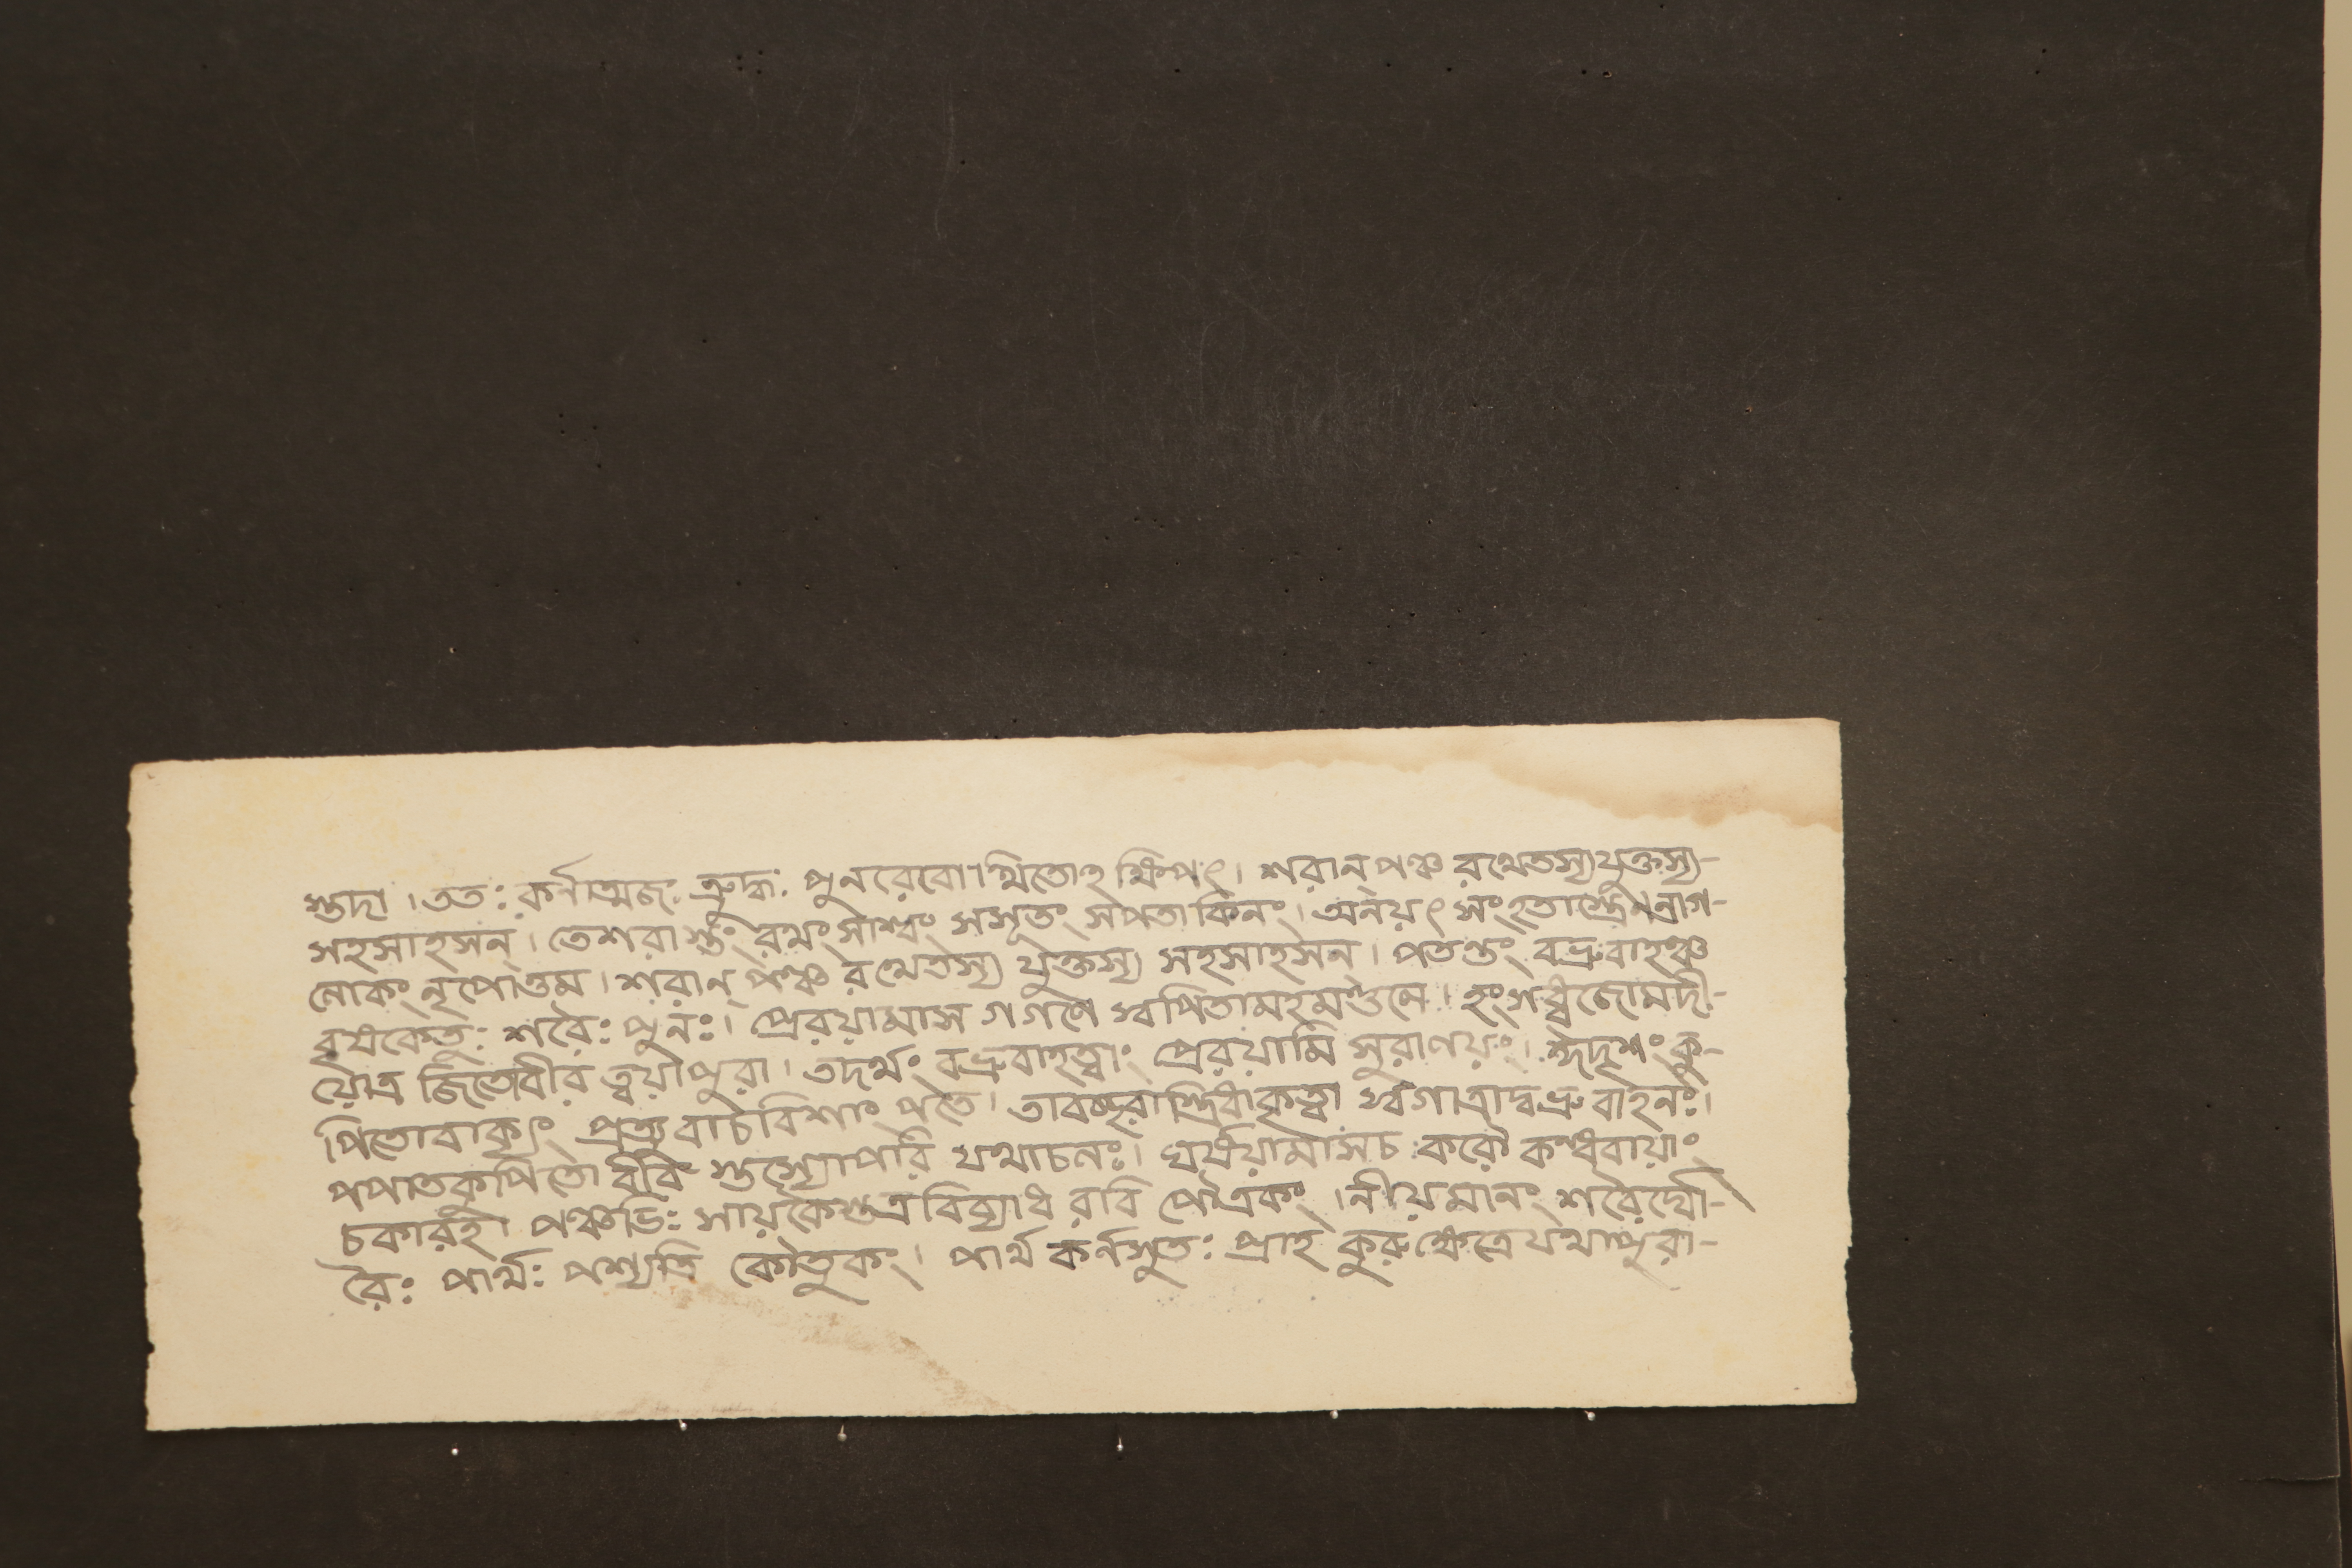 স্তদা । ততঃ কর্ণাত্মজঃ ক্রুদ্ধঃ পুনরেবোত্থিতোঽক্ষিপৎ । শরান্ পঞ্চ রথেতস্য যুক্তস্য-
সহসাহসন্ । তেশরাস্তং রথং সাশ্বং সসূতং সপতাকিনং । অনয়ৎ সংহতাস্ত্রেণ নাগ-
লোকং নৃপোত্তম । শরান্ পঞ্চ রথেতস্য যুক্তস্য সহসাহসন্ । পতন্তং বভ্রুবাহঞ্চ
বৃষকেতুঃ শরৈঃ পুনঃ । প্রেরয়ামাস গগণে স্বপিতামহমণ্ডলে । হংসধ্বজোমদী-
য়োত্র জিতোবীর ত্বয়াপুরা । তদর্থং বভ্রুবাহত্বাং প্রেরয়ামি সুরালয়ং । ঈদৃশং কু-
পিতোবাক্যং প্রত্যুবাচবিশাং পতে । তাবচ্ছরাস্ত্রিধাকৃত্বা স্বগাত্রাদ্বভ্রুবাহনঃ ।
পপাতকুপিতো বীর স্তস্যোপরি যথাচলঃ । ঘর্ষয়ামাসচ করৌ কন্ধরায়াং
চকারহ । পঞ্চভিঃ সায়কৈস্তত্র বিব্যাধ রবি পৌত্রকং । নীয়মানং শরৈর্ঘো-
রৈঃ পার্থঃ পশ্যতি কৌতুকং । পার্থ কর্ণসুতঃ প্রাহ কুরুক্ষেত্রে যথাপুরা-